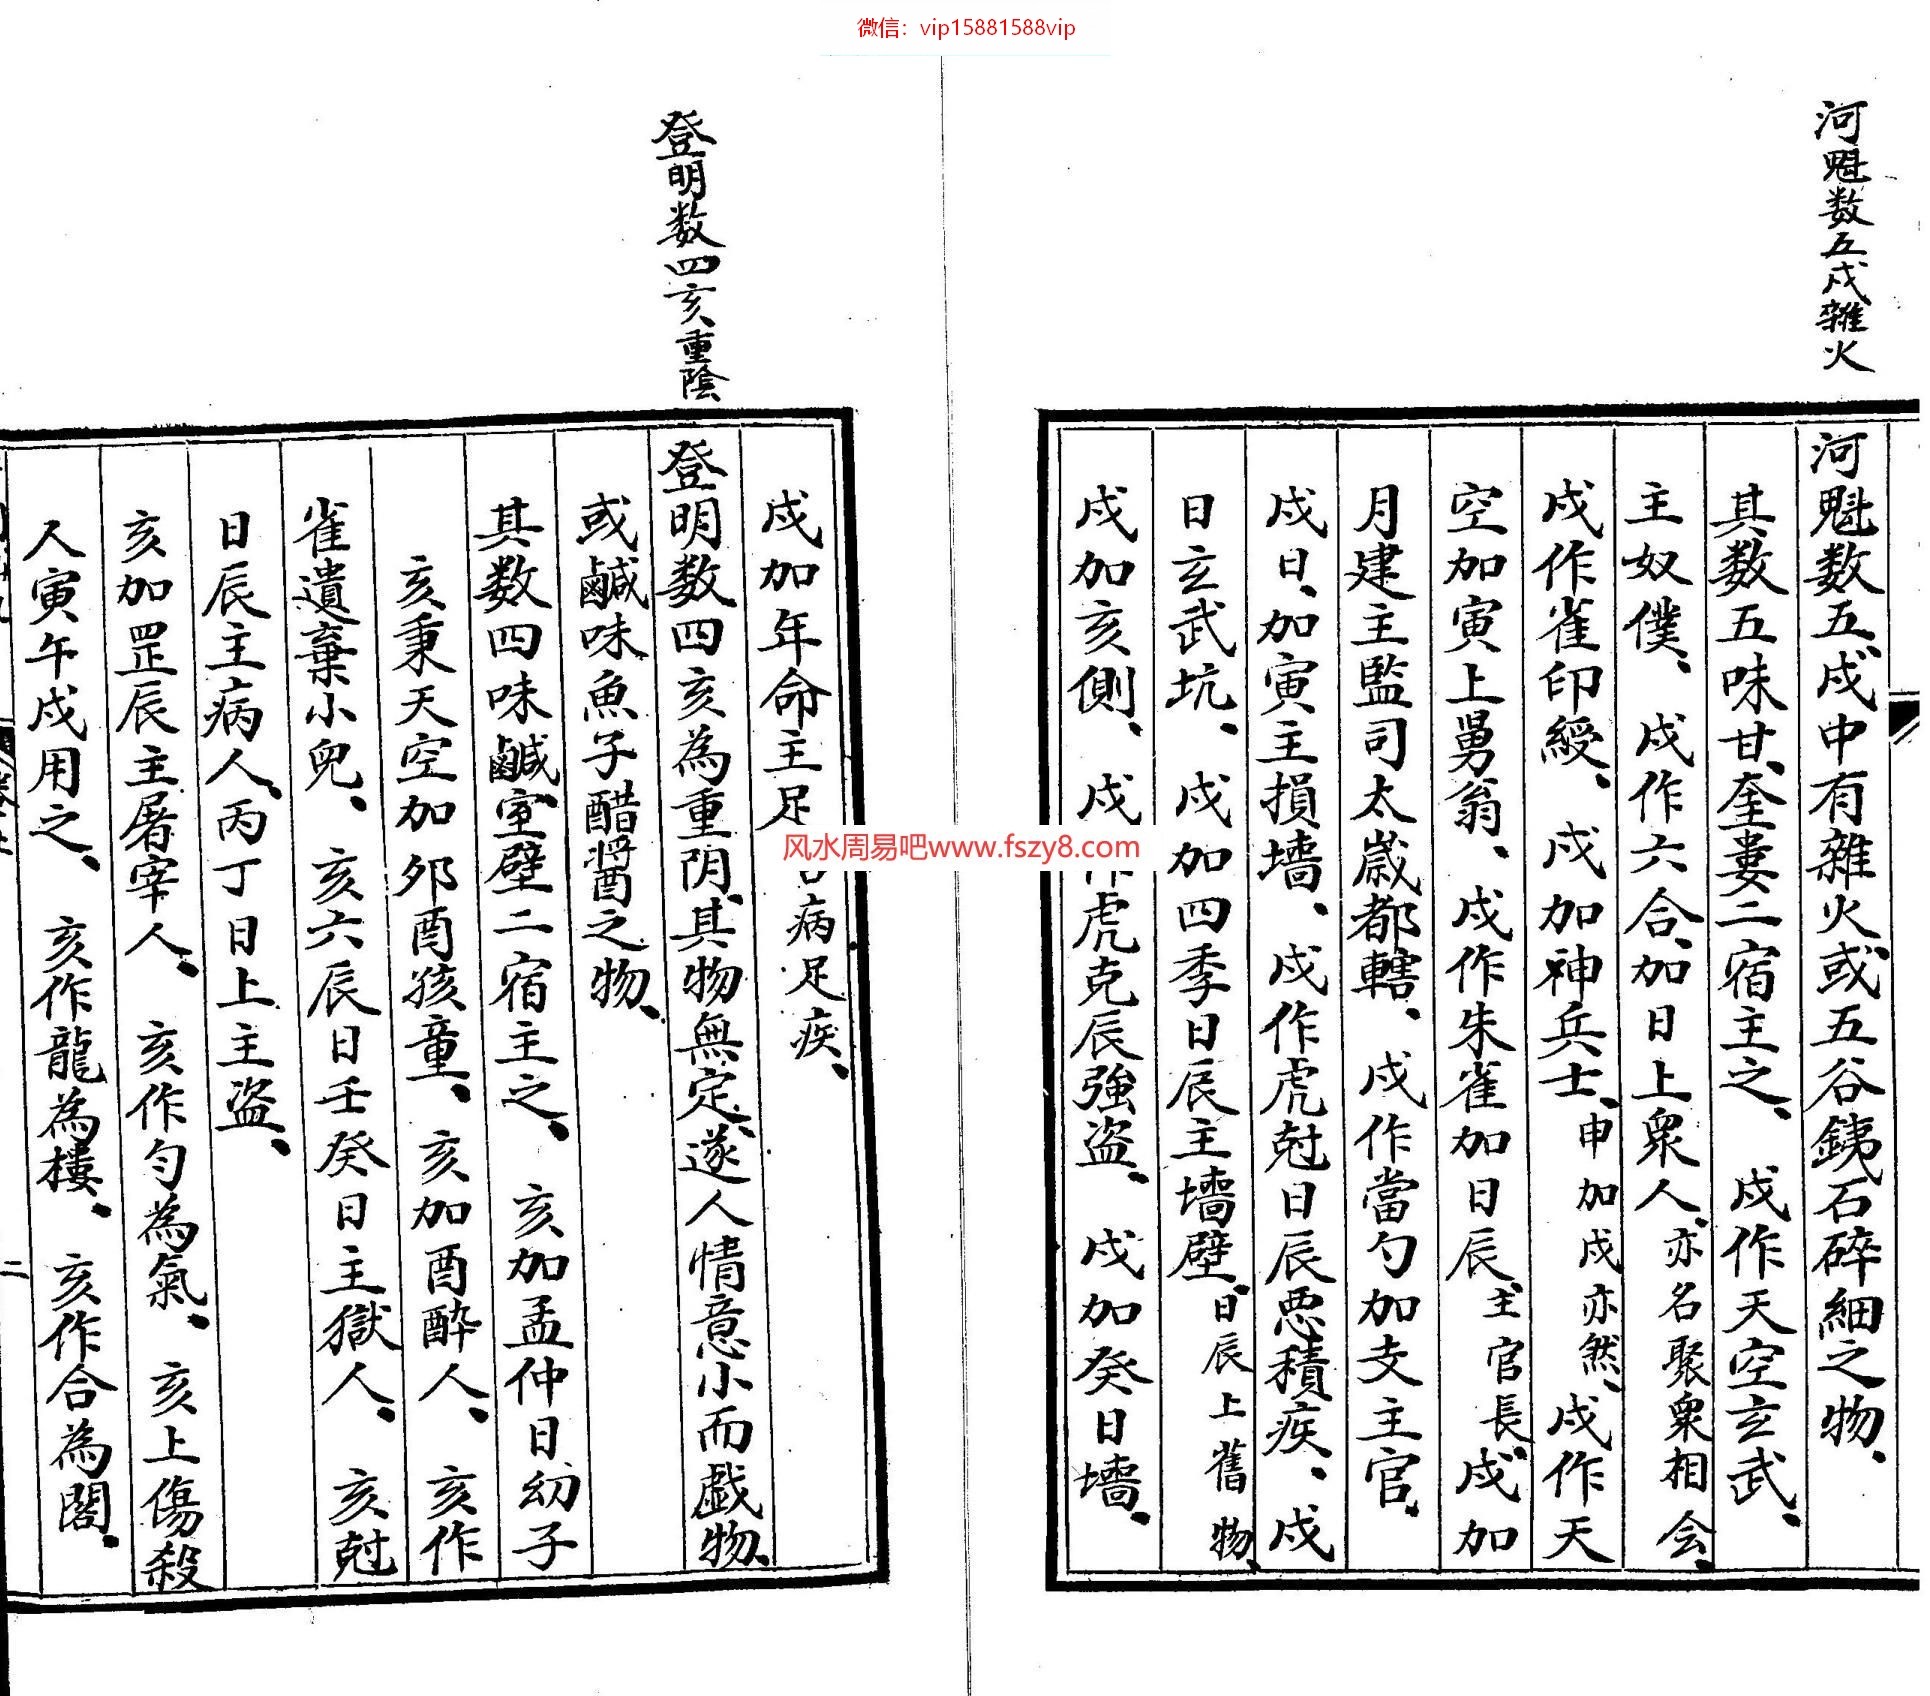 微信：vip15881588vip
河魁数五戌雜火
河魁数五、戌中有雜火、或五谷銕石碎細之物、
其数五味甘、奎婁二宿主之、戌作天空玄武、
主奴僕、戌作六合、加日上衆人、亦名聚衆相会、
戌作雀印綬、戌加神兵士、申加戌亦然、戌作天
空加寅上舅翁、戌作朱雀加日辰、主官長、戌加
月建主監司太歲都轄、戌作當勺加支主官、
戌日、加寅主損墻、戌作虎尅日辰恶積疾、戌
日玄武坑、戌加四季日辰主墻壁、日辰上舊物、
戌加亥側、戌作虎克辰強盜、戌加癸日墻、
登明数四亥重陰
戌加年命主足病足疾、
登明数四亥為重阴、其物無定、遂人情意小而戯物、
或鹹味魚子醋醬之物、
其数四味鹹、室壁二宿主之、亥加孟仲日幼子
亥乘天空加夘酉孩童、亥加酉酔人、亥作
雀遺棄小兒、亥六辰日壬癸日主獄人、亥尅
日辰主病人、丙丁日上主盗、
亥加罡辰主屠宰人、亥作勾為氣、亥上傷殺
人寅午戌用之、亥作龍為樓、亥作合為閣、
二
风水周易吧www.fszy8.com